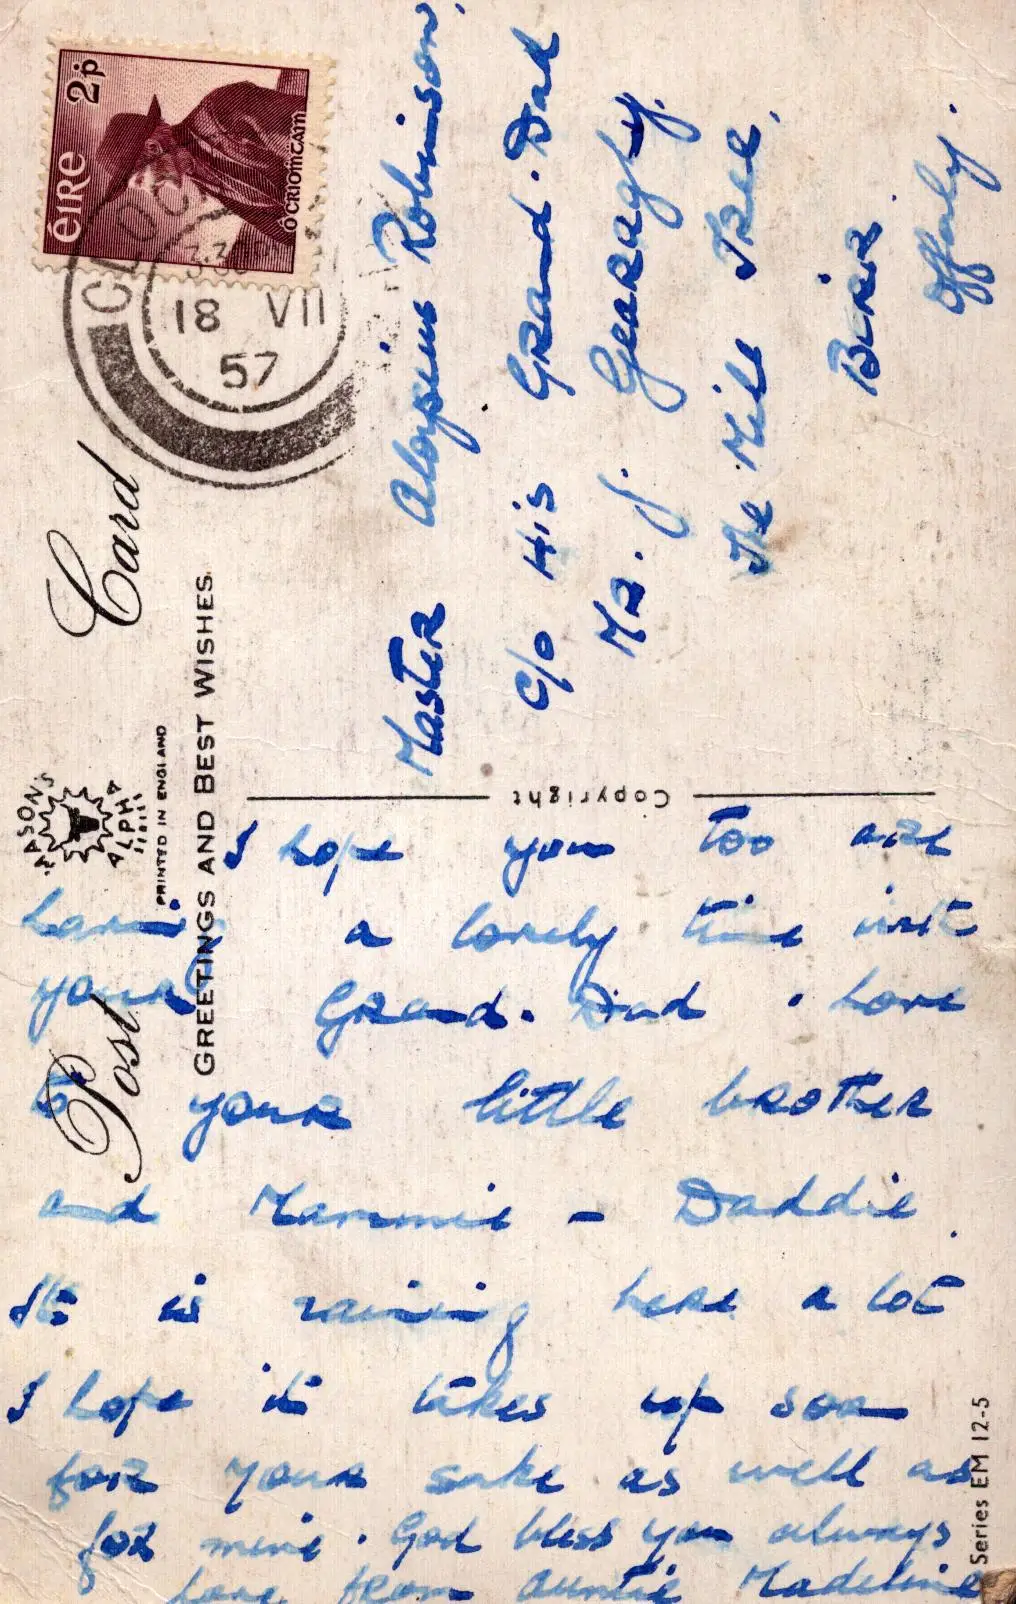 Post Card
MASON'S
ALPHA
SERIES
PRINTED IN ENGLAND
GREETINGS AND BEST WISHES
éIRe
2p
Ó CRIOMTAIN
18 VII
57
Master Aloysius Robinson.
c/o His Grand-Dad
Mr. J. Gearaghy.
The Mile Tree.
Birr
Offaly.
Copyright
I hope you too are
having a lovely time with
your Grand-Dad. Love
to your little brother
and Mammie - Daddie.
It is raining here a lot
I hope it takes up soon
for your sake as well as
for mine. God bless you always
Love from Auntie Madeline
Series EM 12-5